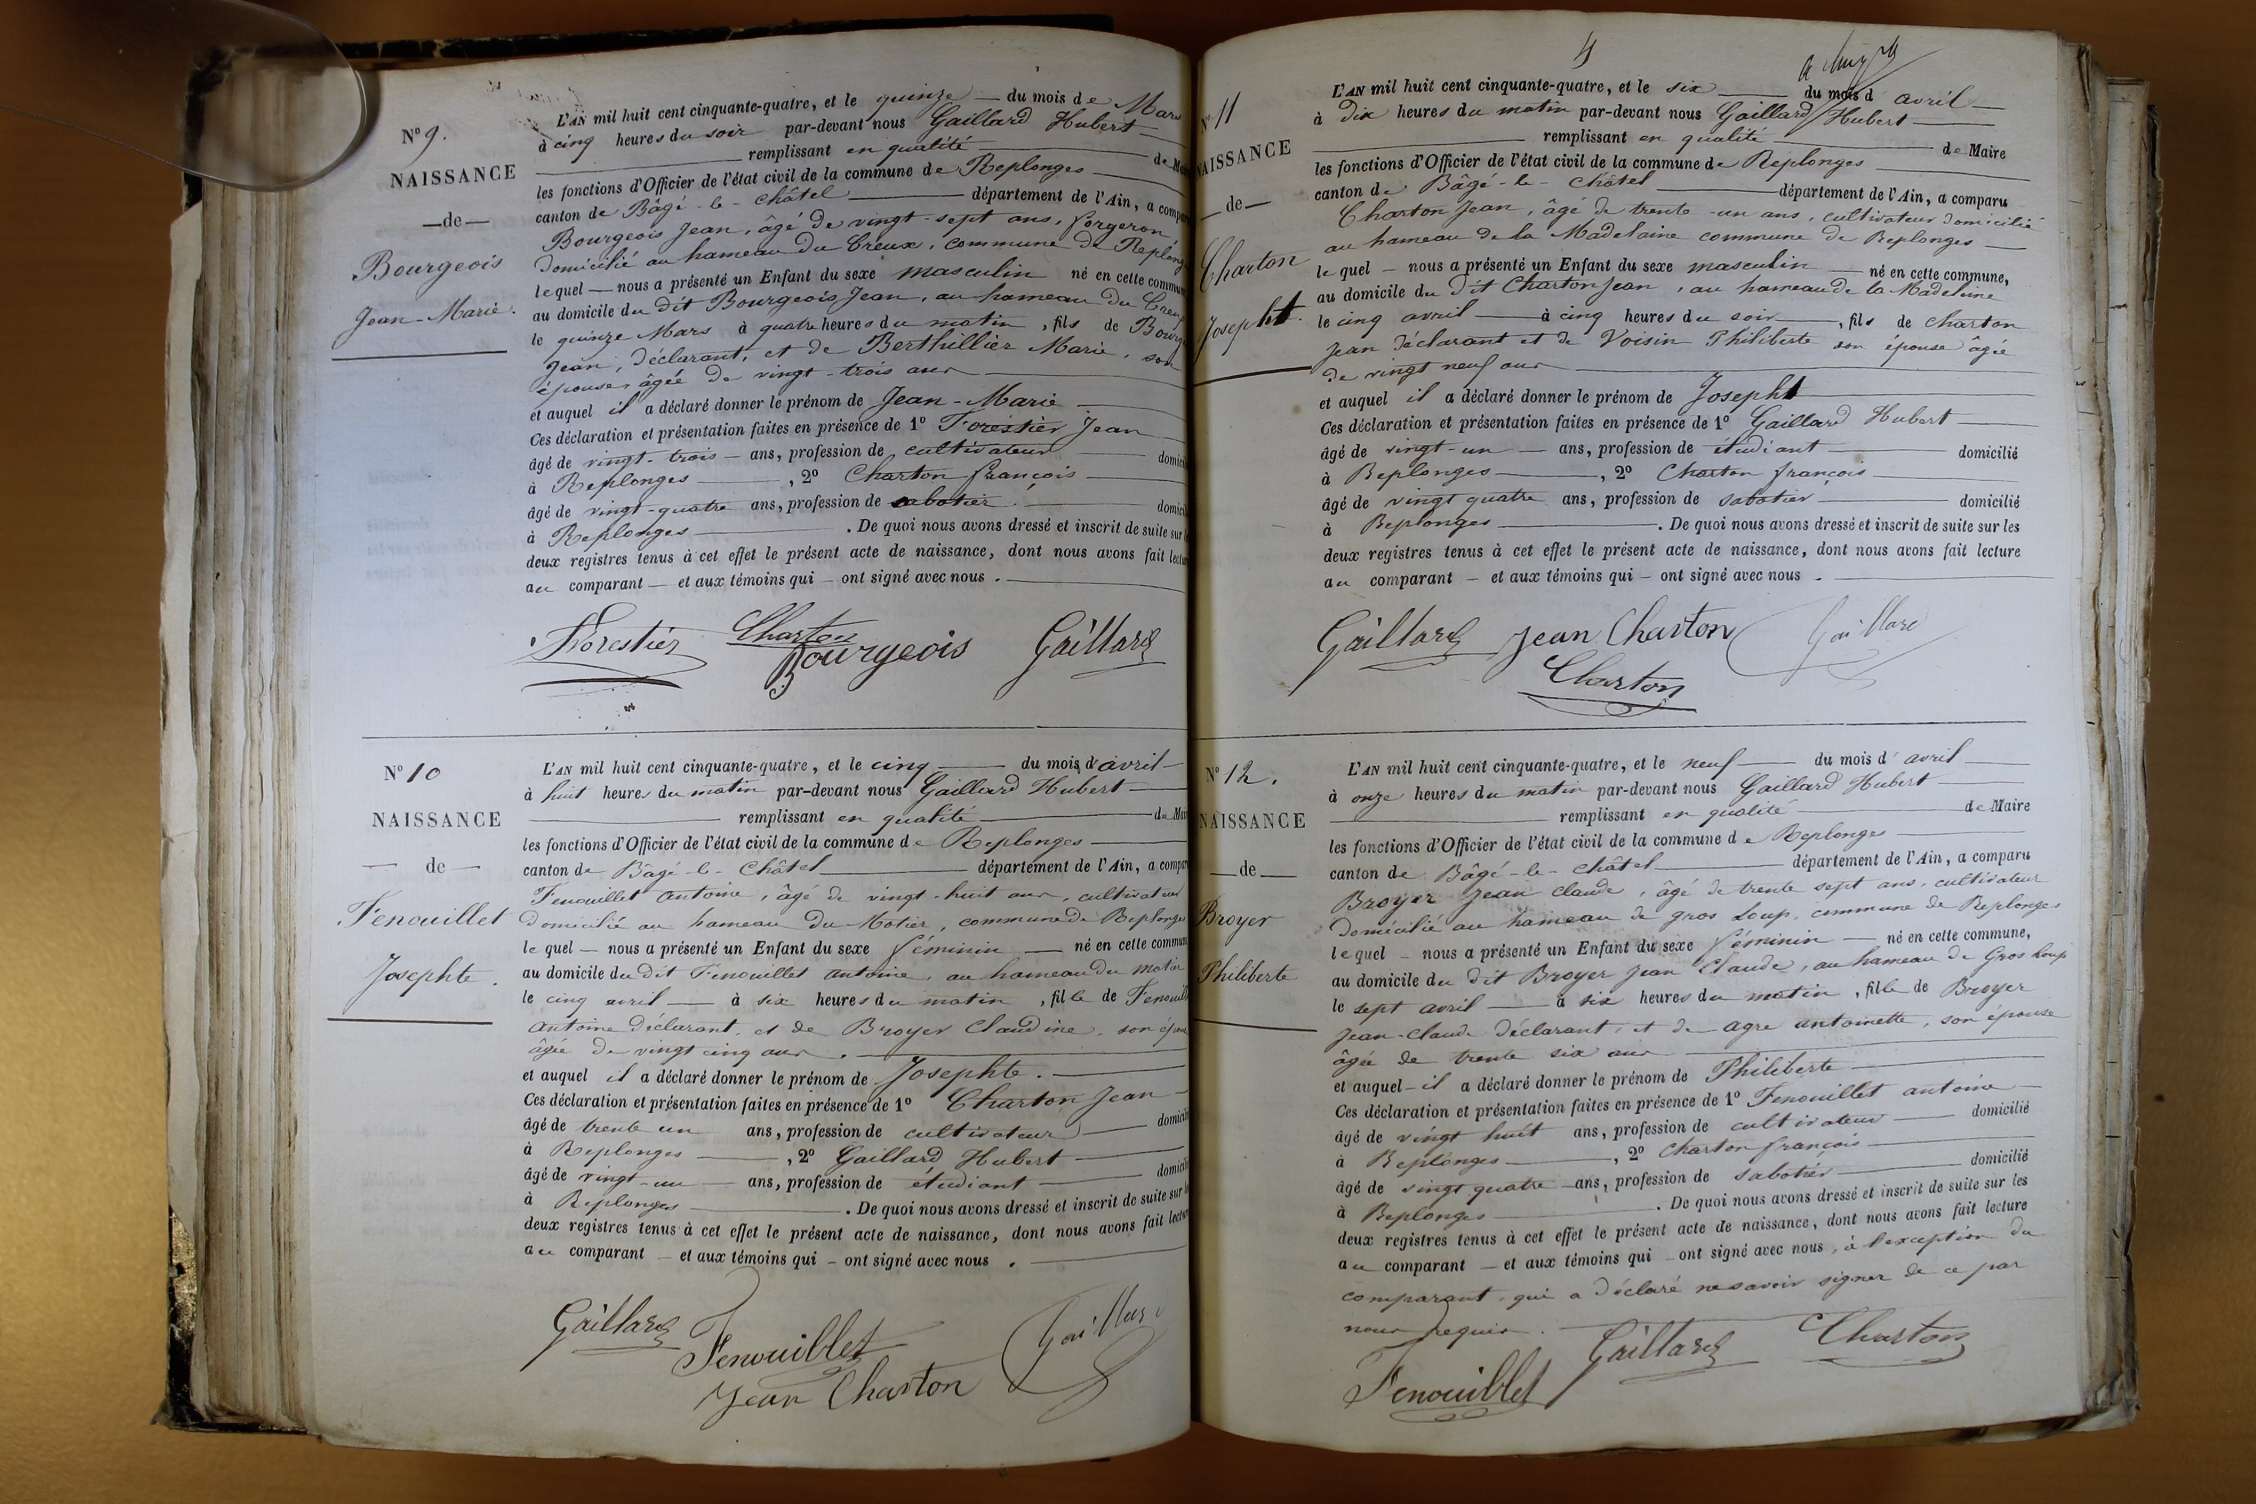 N° 9.
NAISSANCE
—de—
Bourgeois
Jean-Marie.
L'AN mil huit cent cinquante-quatre, et le quinze — du mois de Mars
à cinq heures du soir par-devant nous Gaillard Hubert —
remplissant en qualité — de
les fonctions d'Officier de l'état civil de la commune de Replonges
canton de Bâgé-le-Châtel — département de l'Ain, a
Bourgeois Jean, âgé de vingt-sept ans, forgeron,
domicilié au hameau du Creux, commune de
lequel — nous a présenté un Enfant du sexe masculin né en cette
au domicile du dit Bourgeois Jean, au hameau du
le quinze Mars à quatre heures du matin, fils de
Jean, déclarant, et de Berthillier Marie, son
épouse, âgée de vingt-trois ans —
et auquel il a déclaré donner le prénom de Jean-Marie —
Ces déclaration et présentation faites en présence de 1° Forestier Jean
âgé de vingt-trois — ans, profession de cultivateur —
à Replonges —, 2° Charton françois —
âgé de vingt-quatre ans, profession de sabotier. —
à Replonges — . De quoi nous avons dressé et inscrit de suite sur
deux registres tenus à cet effet le présent acte de naissance, dont nous avons fait
au comparant — et aux témoins qui — ont signé avec nous. —
Forestier Charton Bourgeois Gaillard
N° 10
NAISSANCE
— de —
Fenouillet
Josephte.
L'AN mil huit cent cinquante-quatre, et le cinq — du mois d'avril —
à huit heures du matin par-devant nous Gaillard Hubert —
remplissant en qualité — de
les fonctions d'Officier de l'état civil de la commune de Replonges —
canton de Bâgé-le-Châtel — département de l'Ain, a
Fenouillet antoine, âgé de vingt-huit ans, cultivateur
domicilié au hameau du Motier, commune de Replonges
lequel — nous a présenté un Enfant du sexe féminin — né en cette
au domicile du dit Fenouillet antoine, au hameau du motier
le cinq avril — à six heures du matin, fille de
antoine déclarant, et de Broyer Claudine, son
âgée de vingt cinq ans. —
et auquel il a déclaré donner le prénom de Josephte. —
Ces déclaration et présentation faites en présence de 1° Charton Jean —
âgé de trente un ans, profession de cultivateur —
à Replonges —, 2° Gaillard Hubert —
âgé de vingt-un — ans, profession de étudiant —
à Replonges — . De quoi nous avons dressé et inscrit de suite sur
deux registres tenus à cet effet le présent acte de naissance, dont nous avons fait
au comparant — et aux témoins qui — ont signé avec nous. —
Gaillard Fenouillet Gaillard
Jean Charton
N° 11
NAISSANCE
—de—
Charton
Joseph
L'AN mil huit cent cinquante-quatre, et le six — du mois d'avril —
à dix heures du matin par-devant nous Gaillard Hubert —
remplissant en qualité — de Maire
les fonctions d'Officier de l'état civil de la commune de Replonges —
canton de Bâgé-le-Châtel — département de l'Ain, a comparu
Charton Jean, âgé de trente-un ans, cultivateur domicilié
au hameau de la Madelaine commune de Replonges —
lequel — nous a présenté un Enfant du sexe masculin — né en cette commune,
au domicile du dit Charton Jean, au hameau de la Madeleine
le cinq avril — à cinq heures du soir —, fils de Charton
Jean déclarant et de Voisin Philiberte son épouse âgée
de vingt neuf ans —
et auquel il a déclaré donner le prénom de Joseph
Ces déclaration et présentation faites en présence de 1° Gaillard Hubert —
âgé de vingt-un — ans, profession de étudiant — domicilié
à Replonges —, 2° Charton françois —
âgé de vingt quatre ans, profession de sabotier — domicilié
à Replonges — . De quoi nous avons dressé et inscrit de suite sur les
deux registres tenus à cet effet le présent acte de naissance, dont nous avons fait lecture
au comparant — et aux témoins qui — ont signé avec nous. —
Gaillard Jean Charton Gaillard
Charton
N° 12.
NAISSANCE
—de—
Broyer
Philiberte
L'AN mil huit cent cinquante-quatre, et le neuf — du mois d'avril —
à onze heures du matin par-devant nous Gaillard Hubert —
remplissant en qualité — de Maire
les fonctions d'Officier de l'état civil de la commune de Replonges —
canton de Bâgé-le-Châtel — département de l'Ain, a comparu
Broyer Jean Claude, âgé de trente sept ans, cultivateur
domicilié au hameau de gros Loup, commune de Replonges
lequel — nous a présenté un Enfant du sexe féminin — né en cette commune,
au domicile du dit Broyer Jean Claude, au hameau de Gros Loup
le sept avril — à six heures du matin, fille de Broyer
Jean-Claude déclarant, et de agre antoinette, son épouse
âgée de trente six ans —
et auquel — il a déclaré donner le prénom de Philiberte —
Ces déclaration et présentation faites en présence de 1° Fenouillet antoine —
âgé de vingt huit ans, profession de cultivateur — domicilié
à Replonges —, 2° Charton françois —
âgé de vingt quatre — ans, profession de sabotier — domicilié
à Replonges — . De quoi nous avons dressé et inscrit de suite sur les
deux registres tenus à cet effet le présent acte de naissance, dont nous avons fait lecture
au comparant — et aux témoins qui — ont signé avec nous, à l'exception du
comparant, qui a déclaré ne savoir signer de ce par
nous requis. —
Fenouillet Gaillard Charton